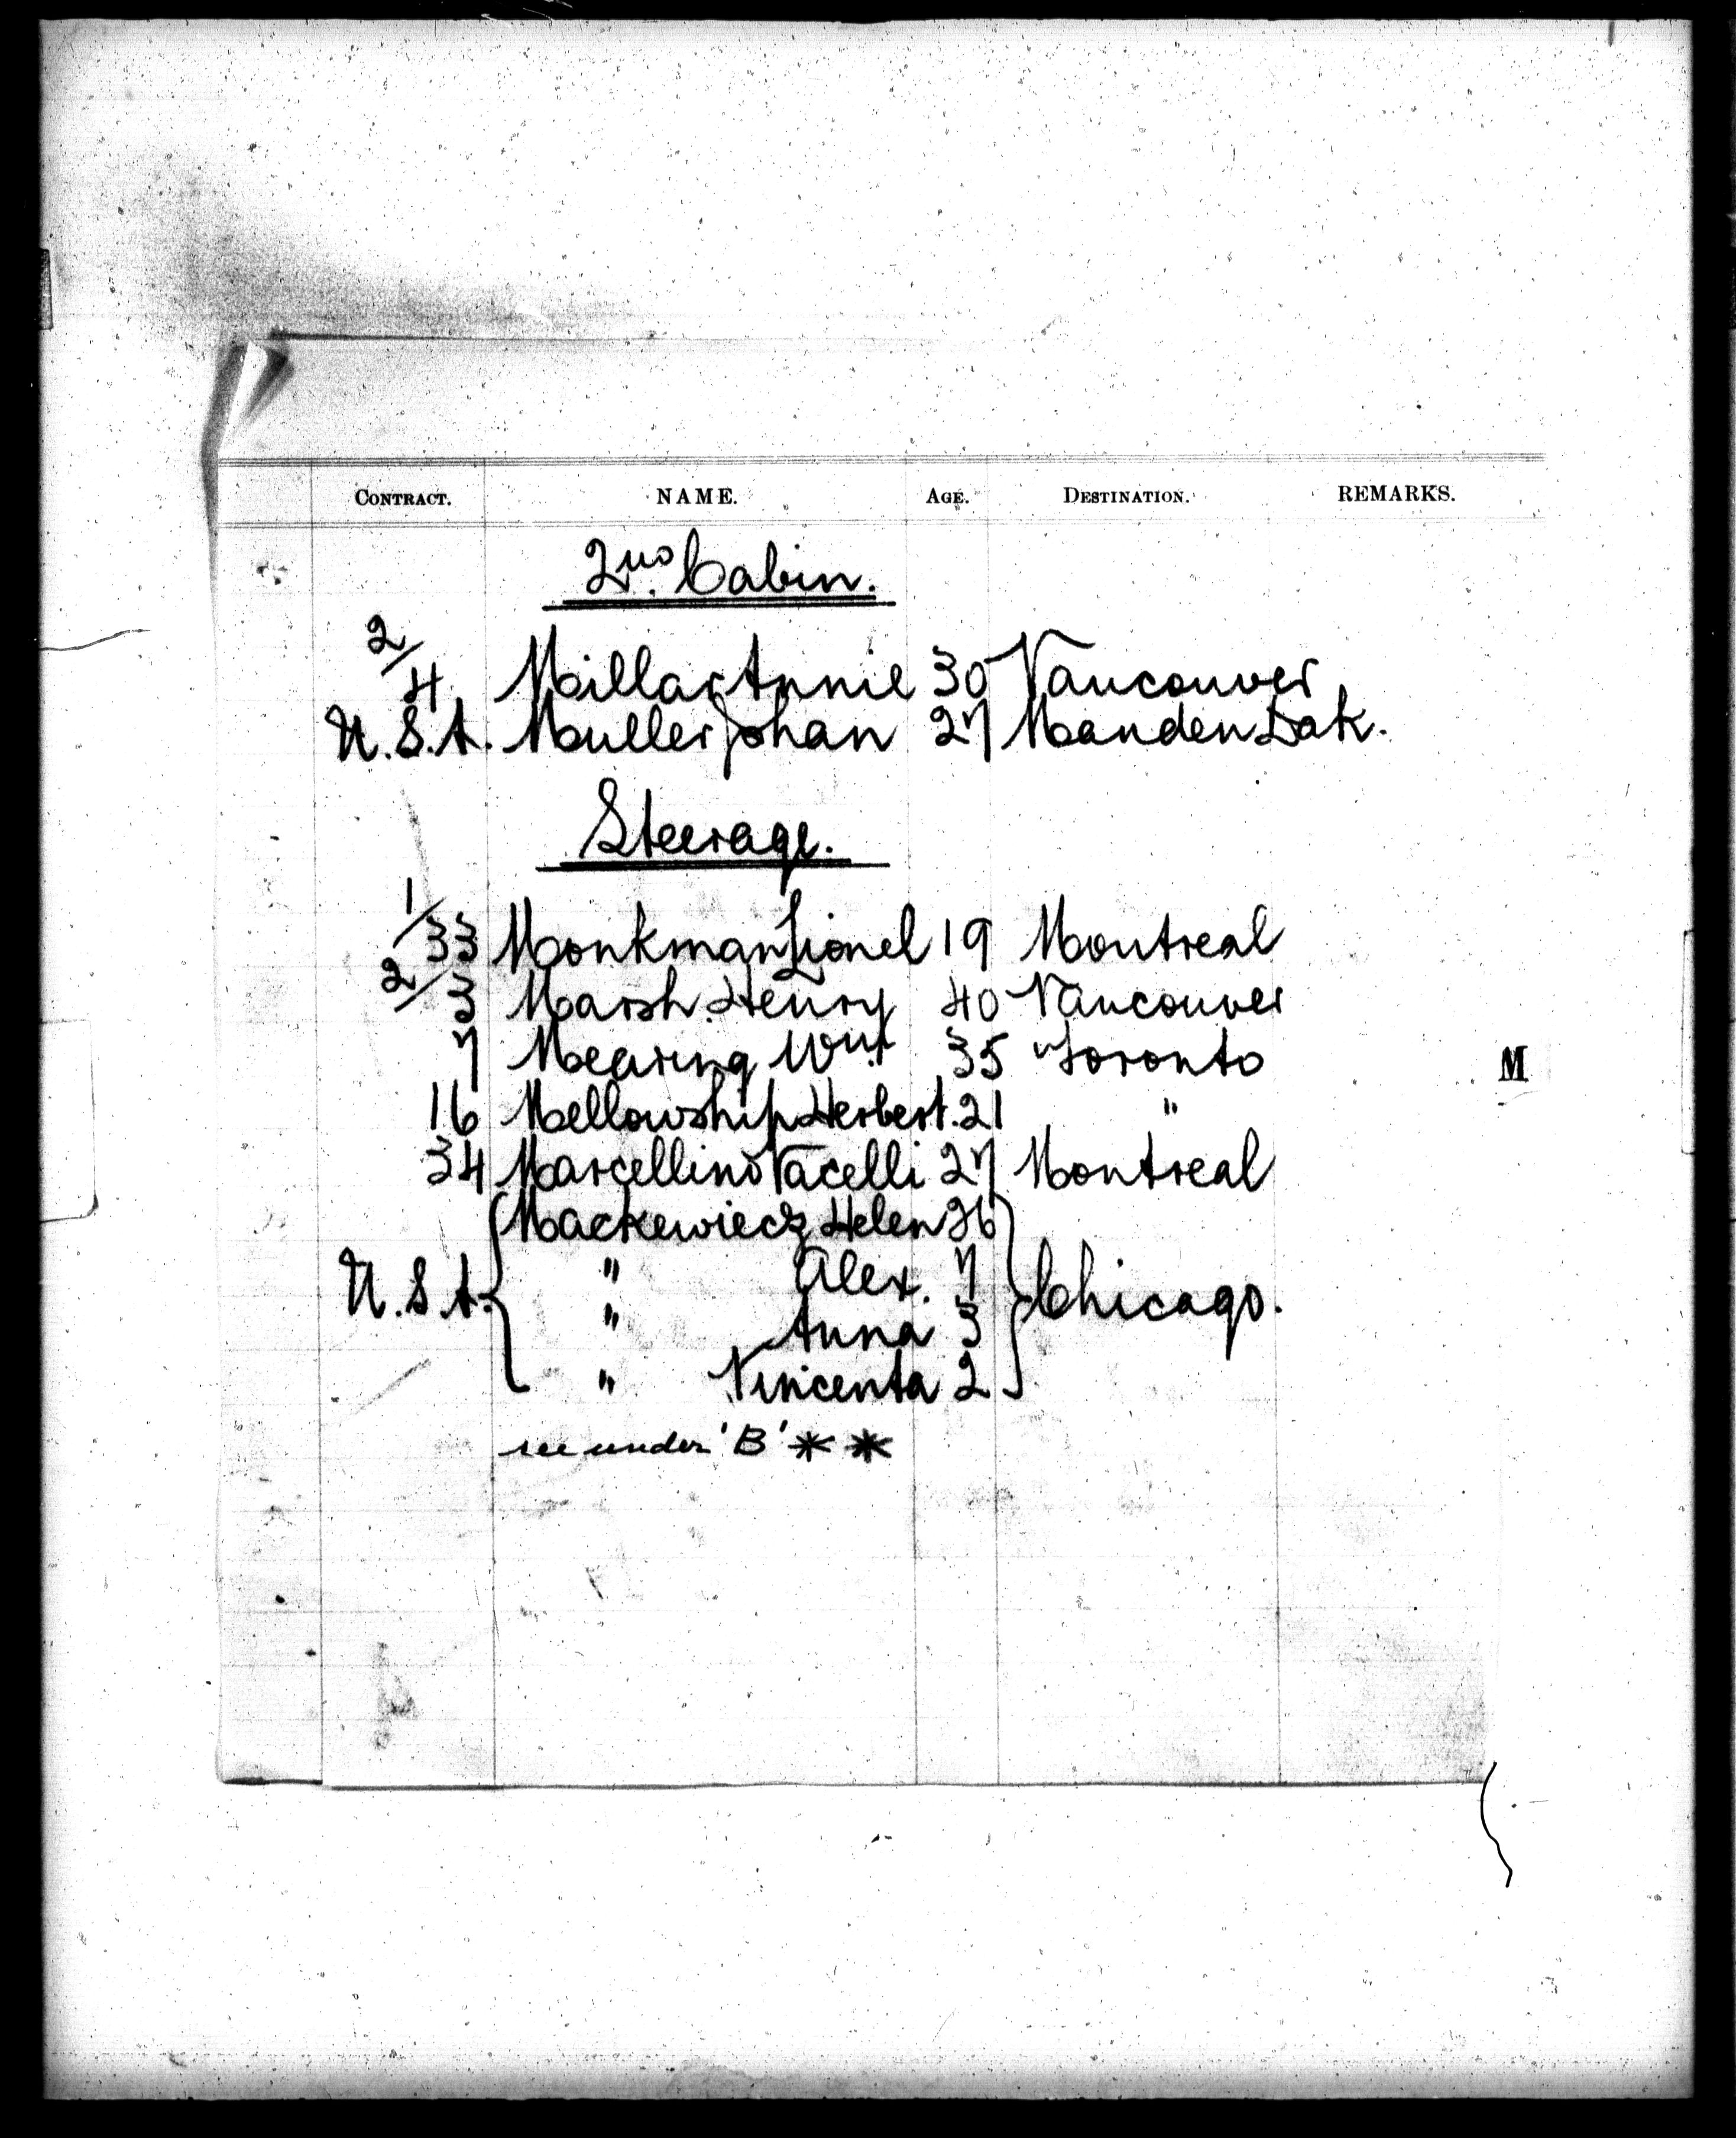 CONTRACT. NAME. AGE. DESTINATION. REMARKS.
2ND. Cabin.
2/4 Millar Annie 30 Vancouver
U.S.A. Muller Johan 27 Manden Dak.
Steerage.
1/33 Monkman Lionel 19 Montreal
2/3 Marsh Henry 40 Vancouver
7 Mearing Wm 35 Toronto
16 Mellowship Herbert. 21 "
34 Marcellino Vacelli 27 Montreal
Mackewiecz Helen 26
" Alex. 7
U.S.A. Chicago.
" Anna 3
" Vincenta 2
see under 'B' * *
M